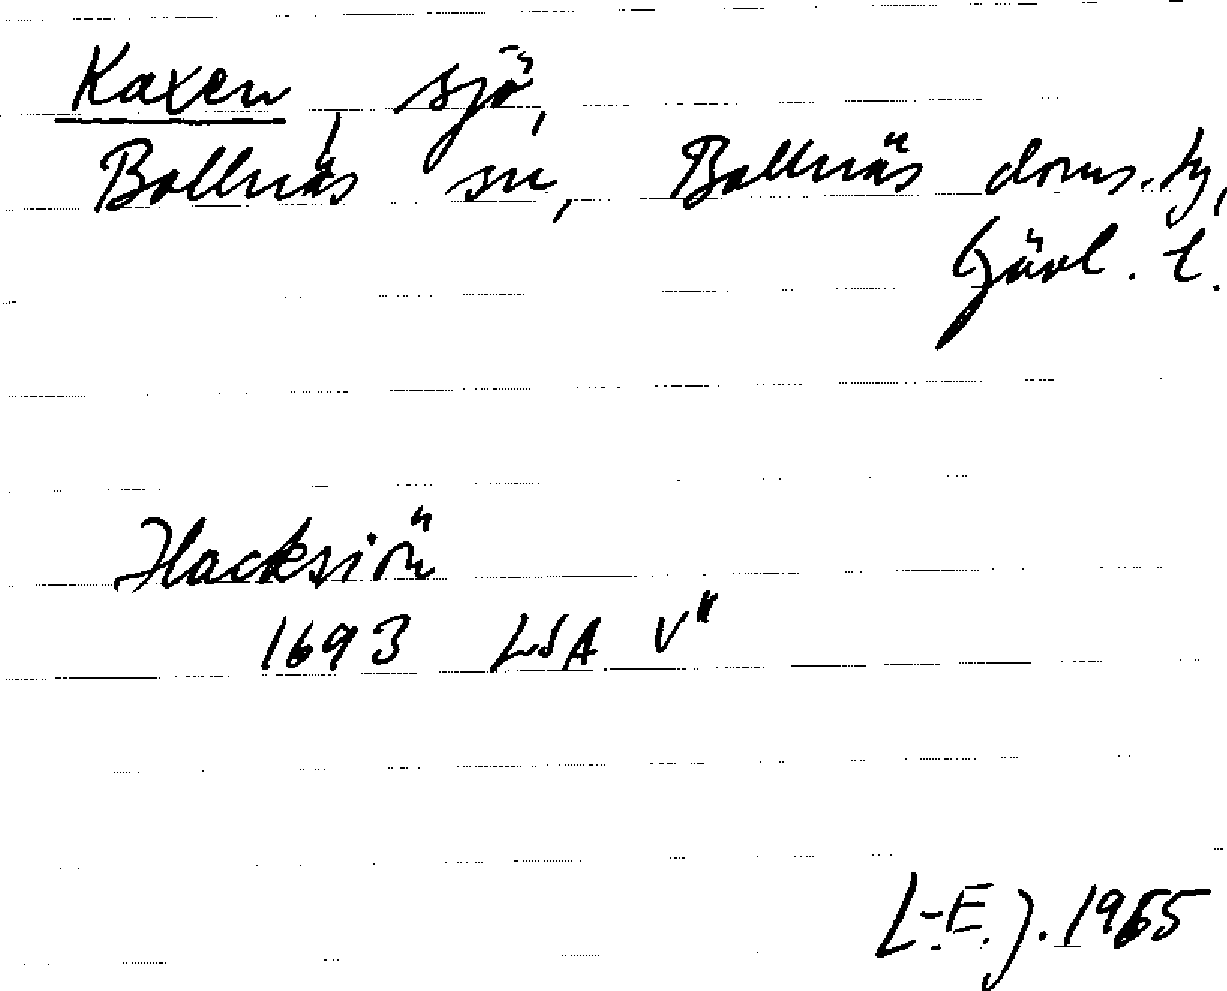 Kaxen, sjö,
Bollnäs sn, Bollnäs doms. hg,
Gävl. l.
Hacksiön
1693 LSA V"
L-E. J. 1965